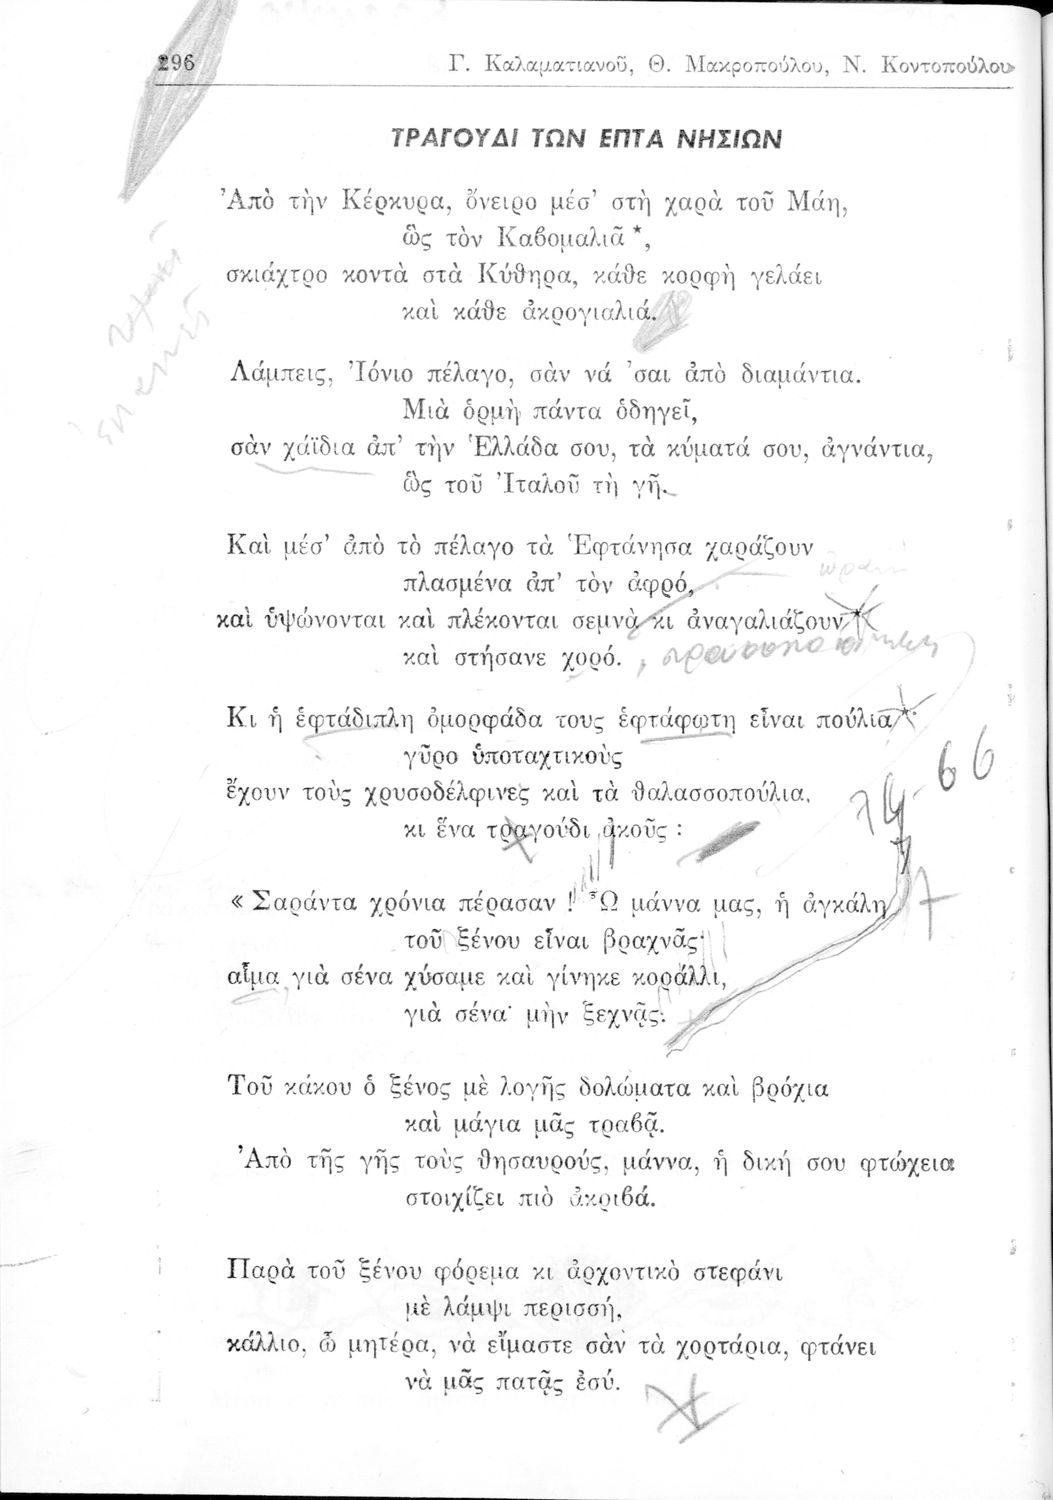 296
Γ. Καλαματιανοῦ, Θ. Μακροπούλου, Ν. Κοντοπούλου
ΤΡΑΓΟΥΔΙ ΤΩΝ ΕΠΤΑ ΝΗΣΙΩΝ
Ἀπὸ τὴν Κέρκυρα, ὄνειρο μέσ’ στὴ χαρὰ τοῦ Μάη,
ὣς τὸν Καβομαλιᾶ *,
σκιάχτρο κοντὰ στὰ Κύθηρα, κάθε κορφὴ γελάει
καὶ κάθε ἀκρογιαλιά.
Λάμπεις, Ἰόνιο πέλαγο, σὰν νά ’σαι ἀπὸ διαμάντια.
Μιὰ ὁρμὴ πάντα ὁδηγεῖ,
σὰν χάϊδια ἀπ’ τὴν Ἑλλάδα σου, τὰ κύματά σου, ἀγνάντια,
ὣς τοῦ Ἰταλοῦ τὴ γῆ.
Καὶ μέσ’ ἀπὸ τὸ πέλαγο τὰ Ἑφτάνησα χαράζουν
πλασμένα ἀπ’ τὸν ἀφρό,
καὶ ὑψώνονται καὶ πλέκονται σεμνὰ κι ἀναγαλιάζουν *
καὶ στήσανε χορό.
Κι ἡ ἑφτάδιπλη ὀμορφάδα τους ἑφτάφωτη εἶναι πούλια *·
γῦρο ὑποταχτικοὺς
ἔχουν τοὺς χρυσοδέλφινες καὶ τὰ θαλασσοπούλια,
κι ἕνα τραγούδι ἀκοῦς :
14-66
« Σαράντα χρόνια πέρασαν ! Ὦ μάννα μας, ἡ ἀγκάλη
τοῦ ξένου εἶναι βραχνᾶς·
αἷμα γιὰ σένα χύσαμε καὶ γίνηκε κοράλλι,
γιὰ σένα· μὴν ξεχνᾷς.
Τοῦ κάκου ὁ ξένος μὲ λογῆς δολώματα καὶ βρόχια
καὶ μάγια μᾶς τραβᾷ.
Ἀπὸ τῆς γῆς τοὺς θησαυρούς, μάννα, ἡ δική σου φτώχεια
στοιχίζει πιὸ ἀκριβά.
Παρὰ τοῦ ξένου φόρεμα κι ἀρχοντικὸ στεφάνι
μὲ λάμψι περισσή,
κάλλιο, ὦ μητέρα, νὰ εἴμαστε σὰν τὰ χορτάρια, φτάνει
νὰ μᾶς πατᾷς ἐσύ.